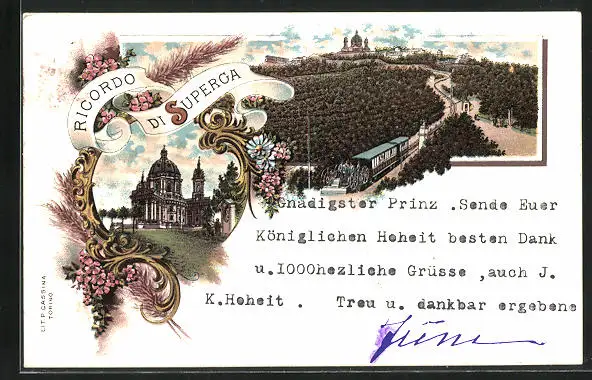 RICORDO
DI SUPERGA
Gnädigster Prinz .Sende Euer
Königlichen Hoheit besten Dank
u.1000hezliche Grüsse ,auch J.
K.Hoheit . Treu u. dankbar ergebene
LIT. P. CASSINA
TORINO